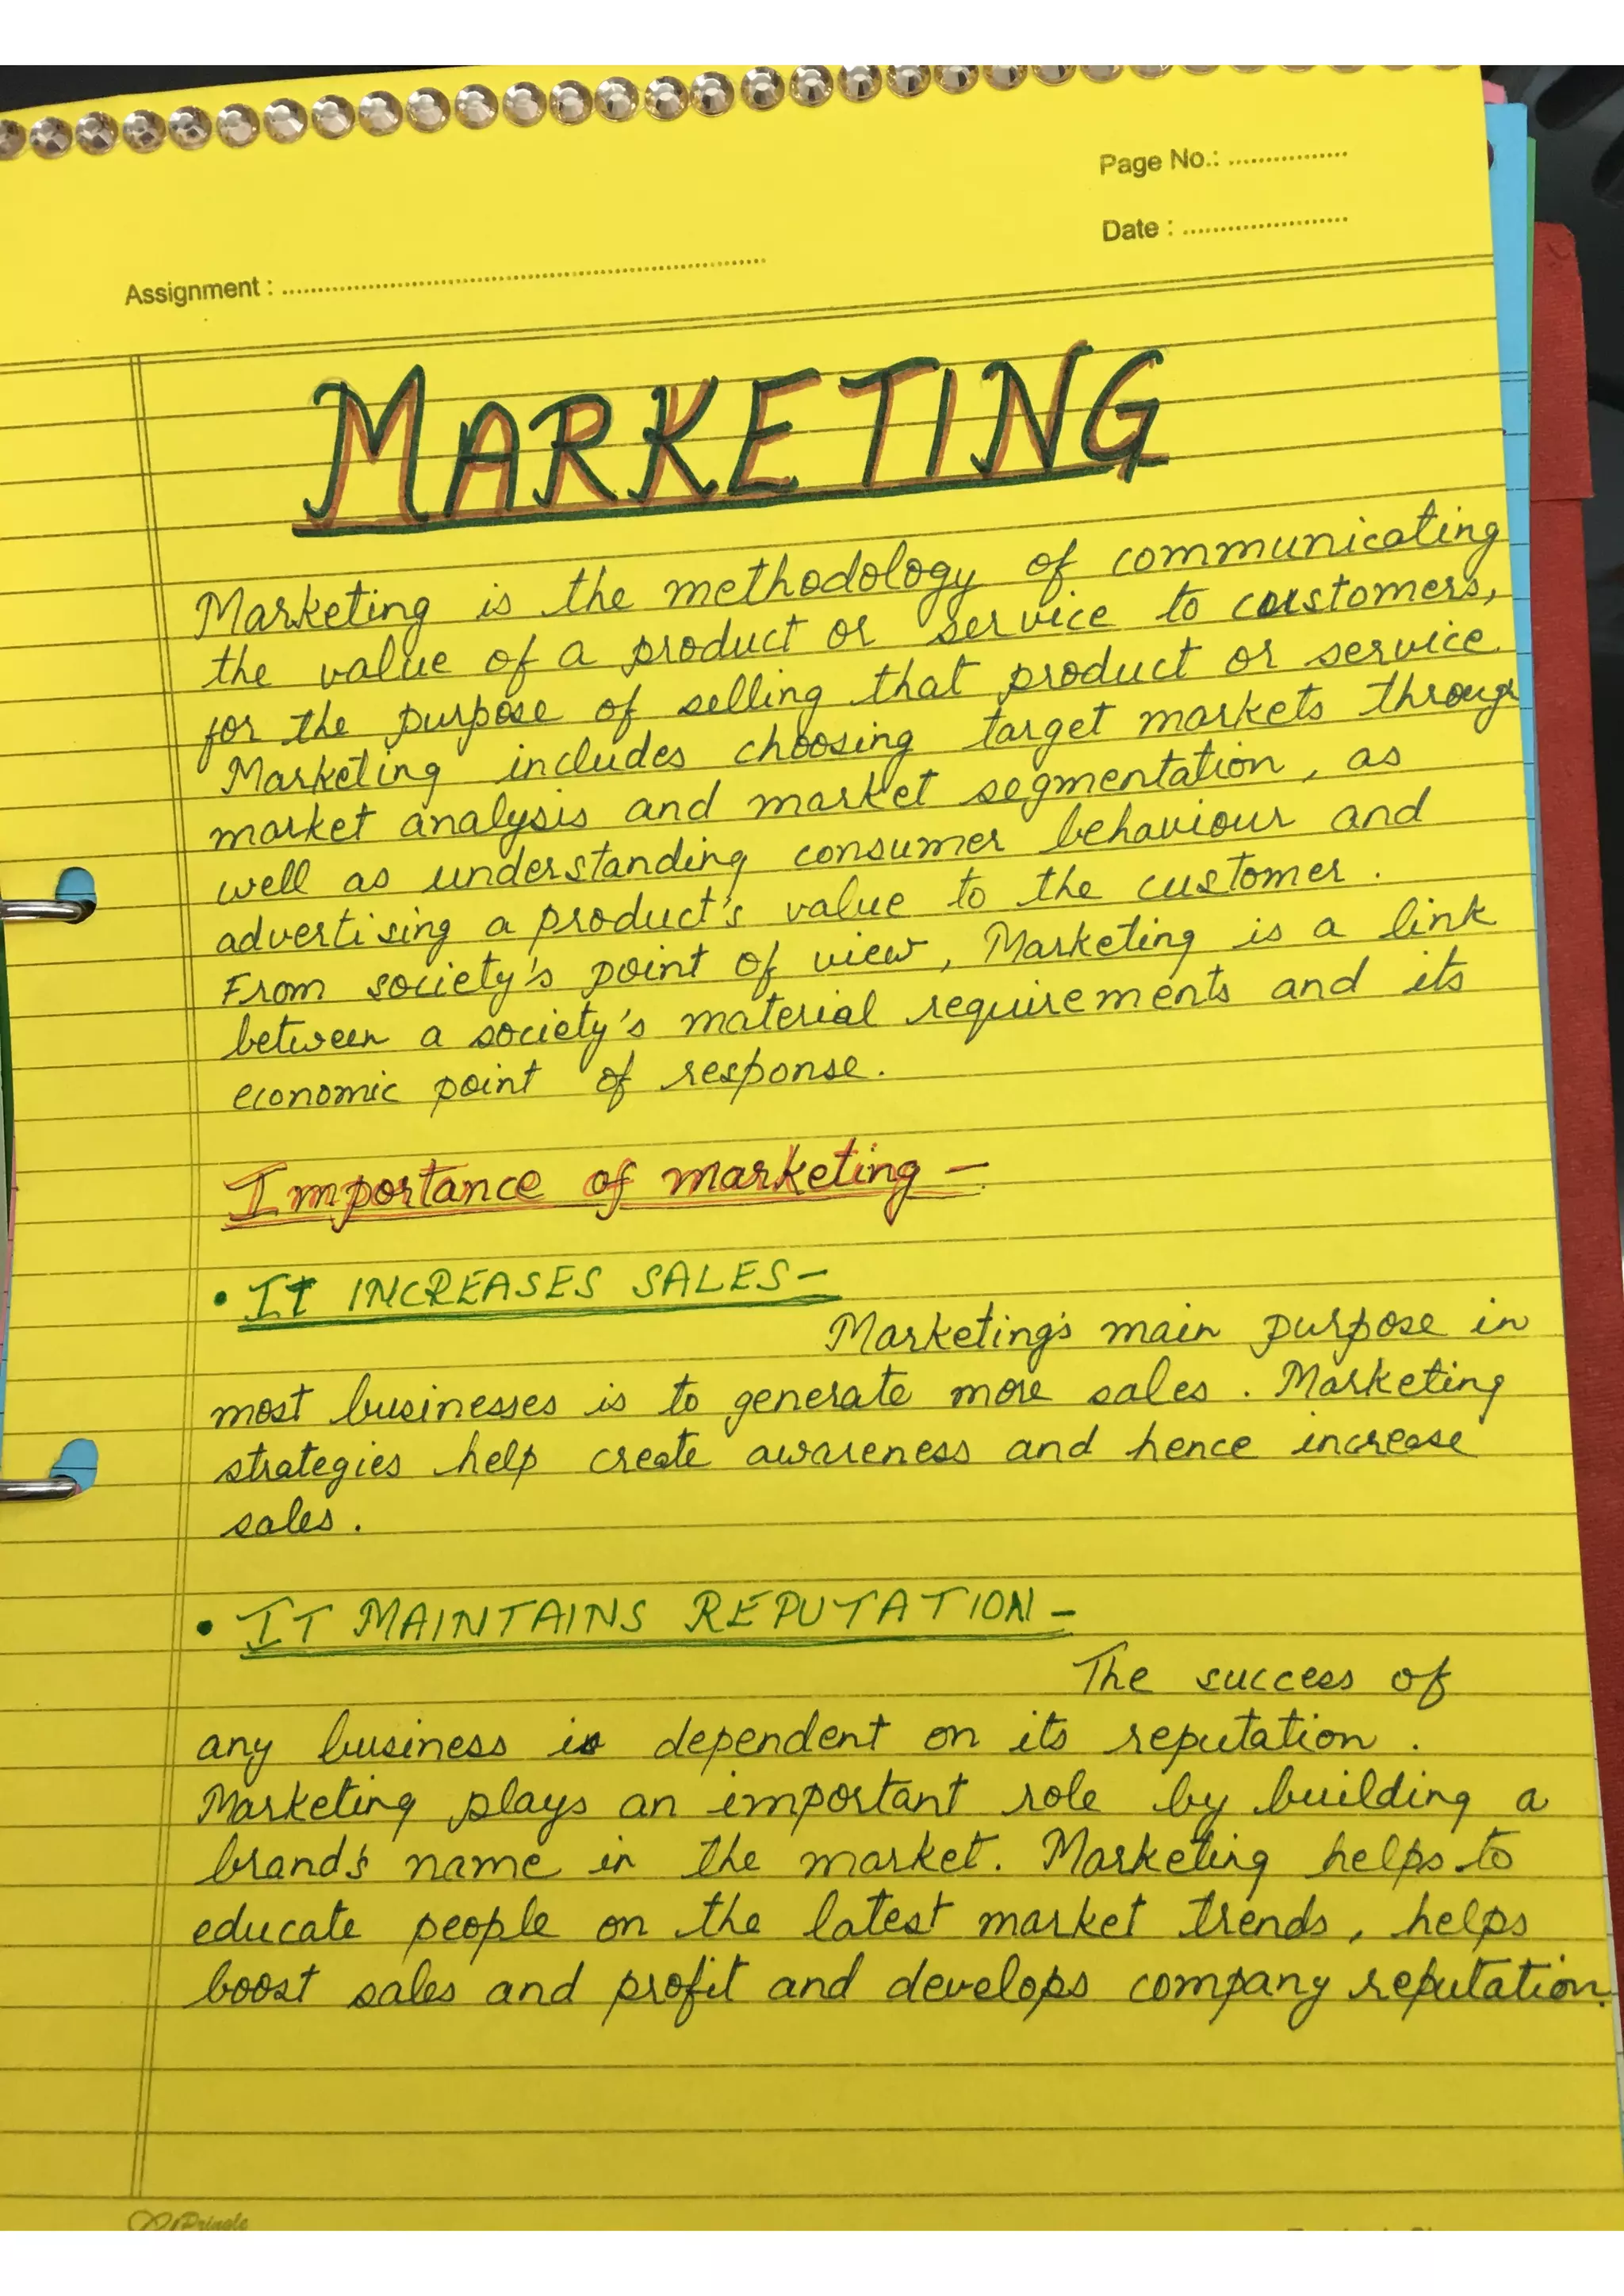 Page No.: ................
Date : ......................
Assignment : ................................................................
MARKETING
Marketing is the methodology of communicating
the value of a product or service to customers,
for the purpose of selling that product or service.
Marketing includes choosing target markets through
market analysis and market segmentation, as
well as understanding consumer behaviour and
advertising a product's value to the customer.
From society's point of view, Marketing is a link
between a society's material requirements and its
economic point of response.
Importance of marketing -
• IT INCREASES SALES-
Marketing's main purpose in
most businesses is to generate more sales. Marketing
strategies help create awareness and hence increase
sales.
• IT MAINTAINS REPUTATION-
The success of
any business is dependent on its reputation.
Marketing plays an important role by building a
brand's name in the market. Marketing helps to
educate people on the latest market trends, helps
boost sales and profit and develops company reputation.
Pringle